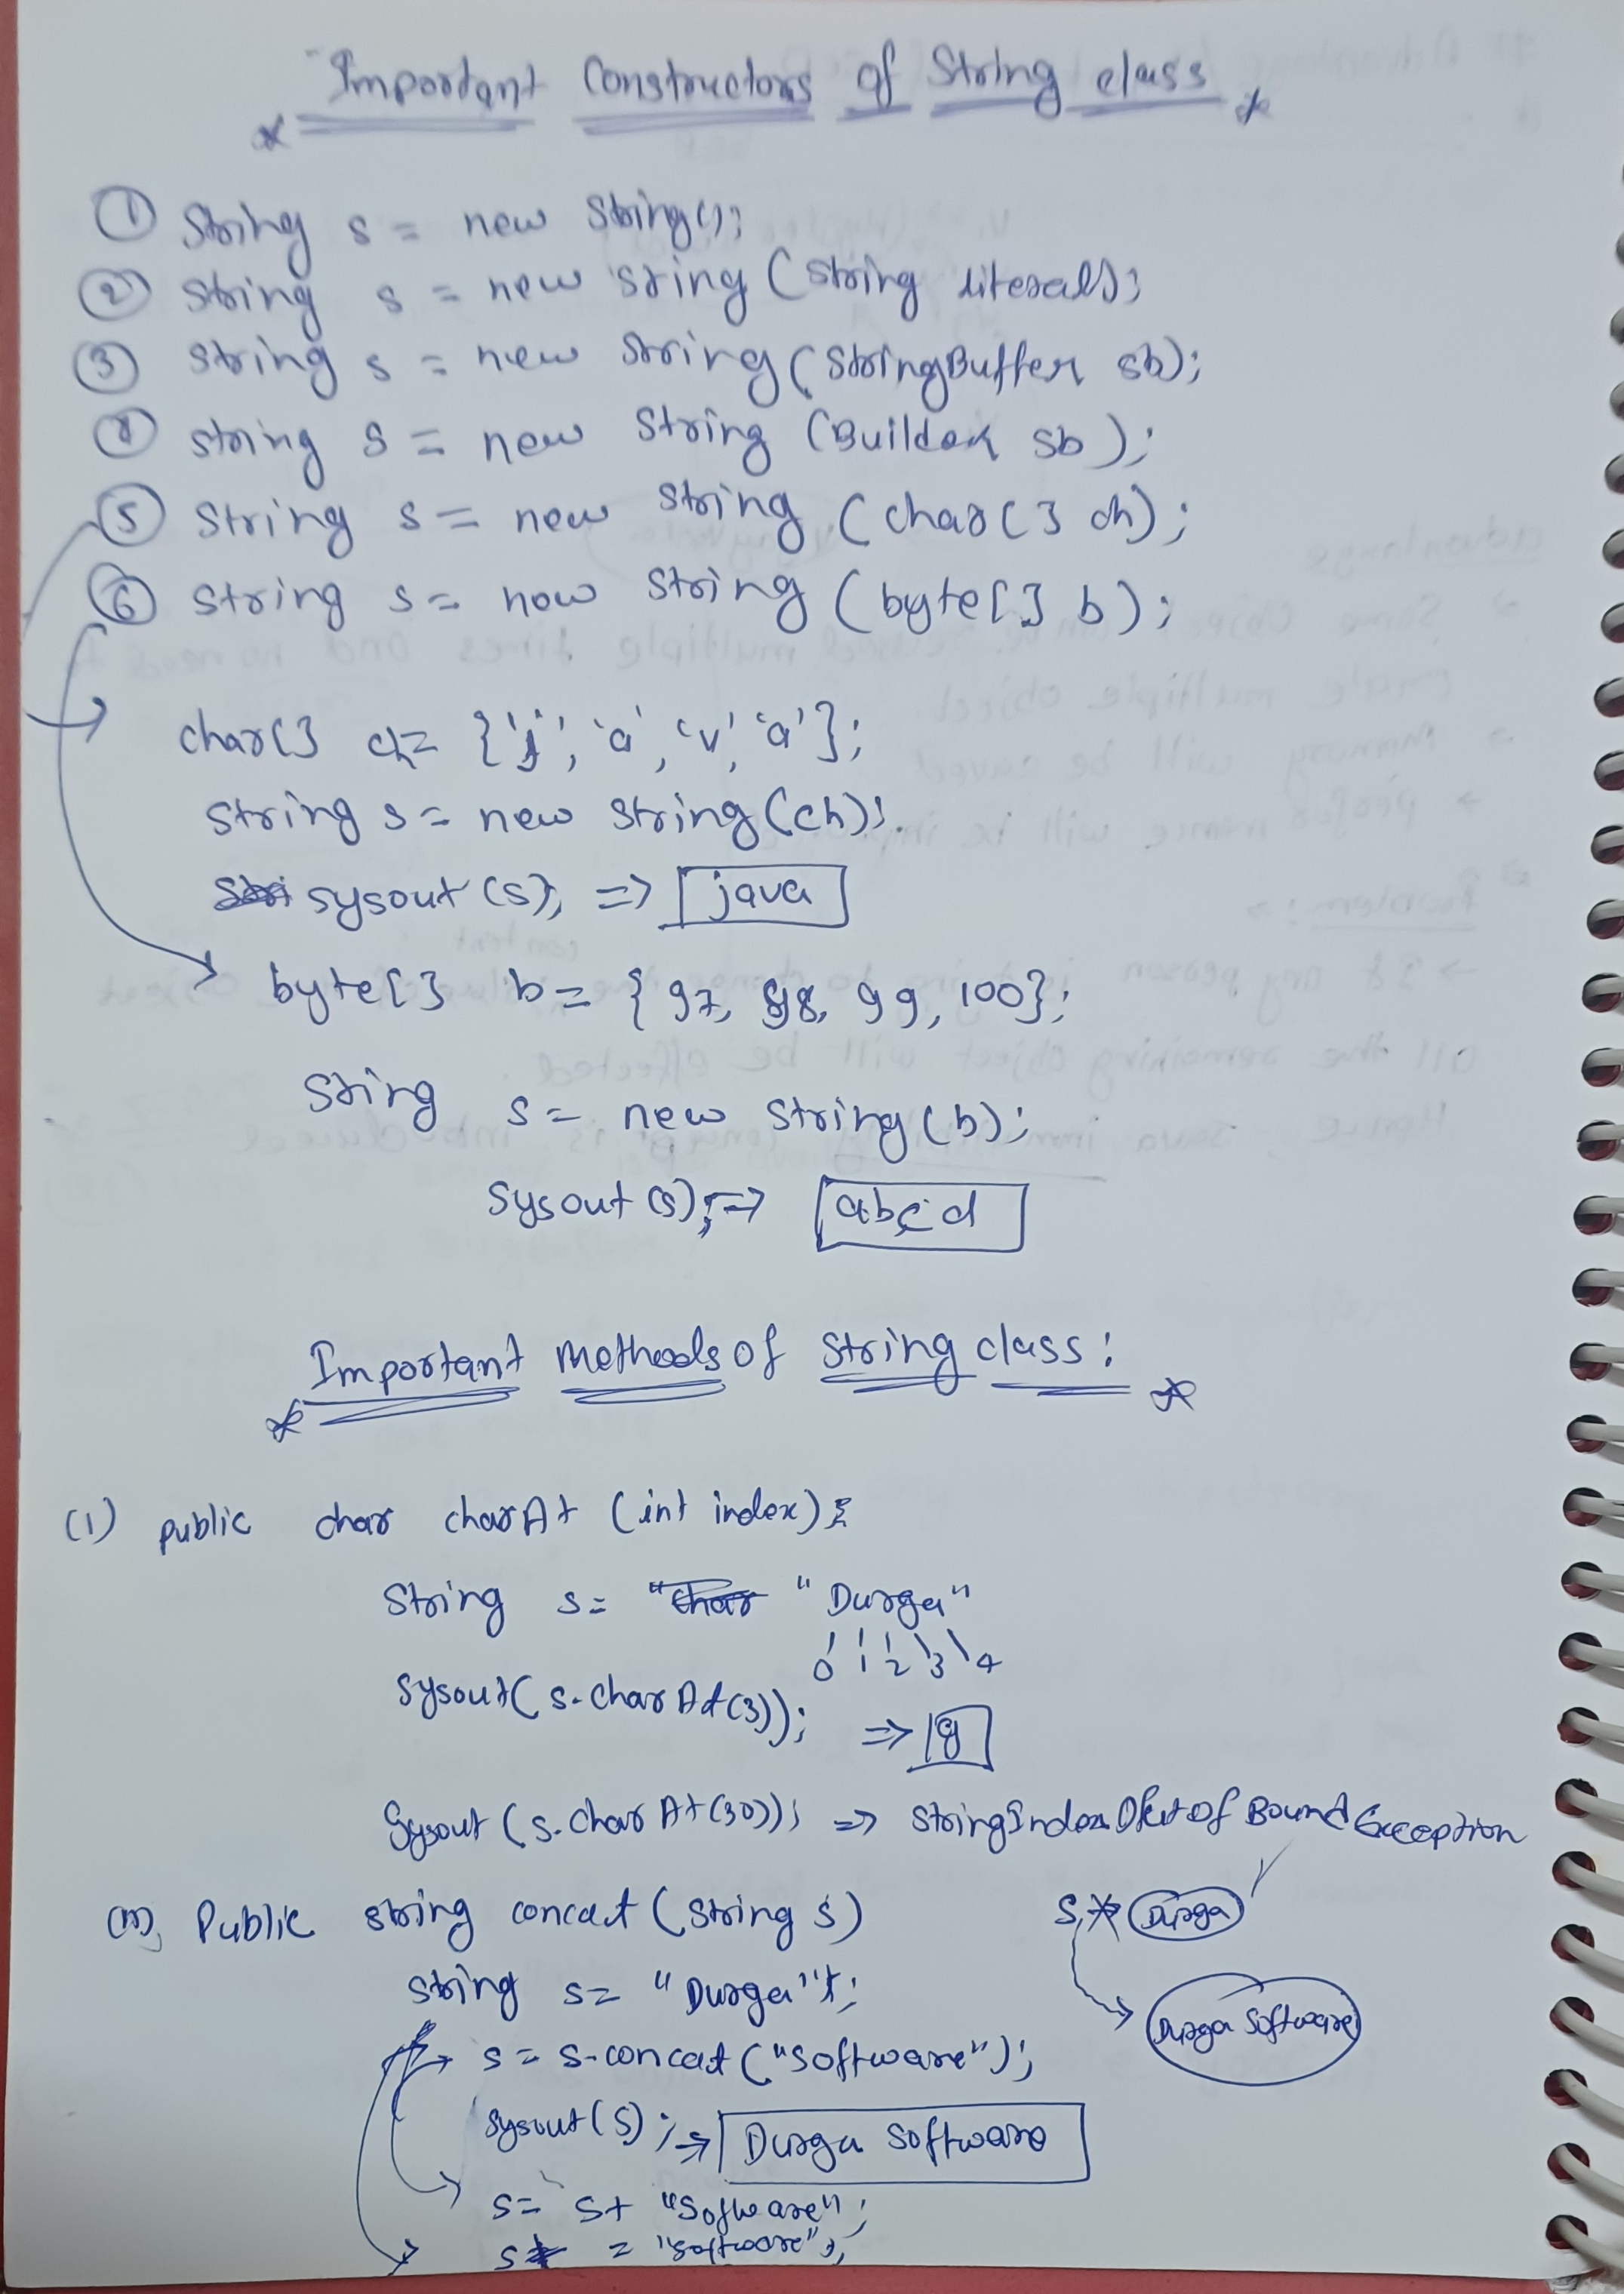 Important Constructors of String class
① String s = new String();
② String s = new String (String literal);
③ String s = new String (StringBuffer sb);
④ String s = new String (Builder sb);
⑤ String s = new String (char[] ch);
⑥ String s = new String (byte[] b);
char[] ch = {'j', 'a', 'v', 'a'};
String s = new String(ch);
sysout (s); => java
byte[] b = {97, 98, 99, 100};
String s = new String(b);
Sysout (s); => abcd
Important Methods of String class:
(i) public char charAt (int index);
String s = "Durga"
0 1 2 3 4
Sysout( s.charAt(3)); => g
Sysout (s.charAt(30)); => StringIndexOutOfBoundException
(ii) Public String concat (String s)
s Durga
String s = "Durga";
s = s.concat ("Software");
Durga Software
Sysout (s); => Durga Software
s = s + "Software";
s = "Software";